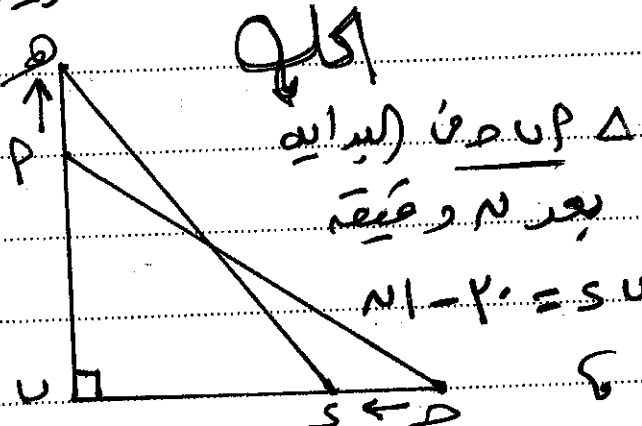 الحل
هـ
△ أ ب جـ فى البدايه
أ
بعد ن دقيقه
ب د = ٢٠ - ١ن
ب
د ← جـ